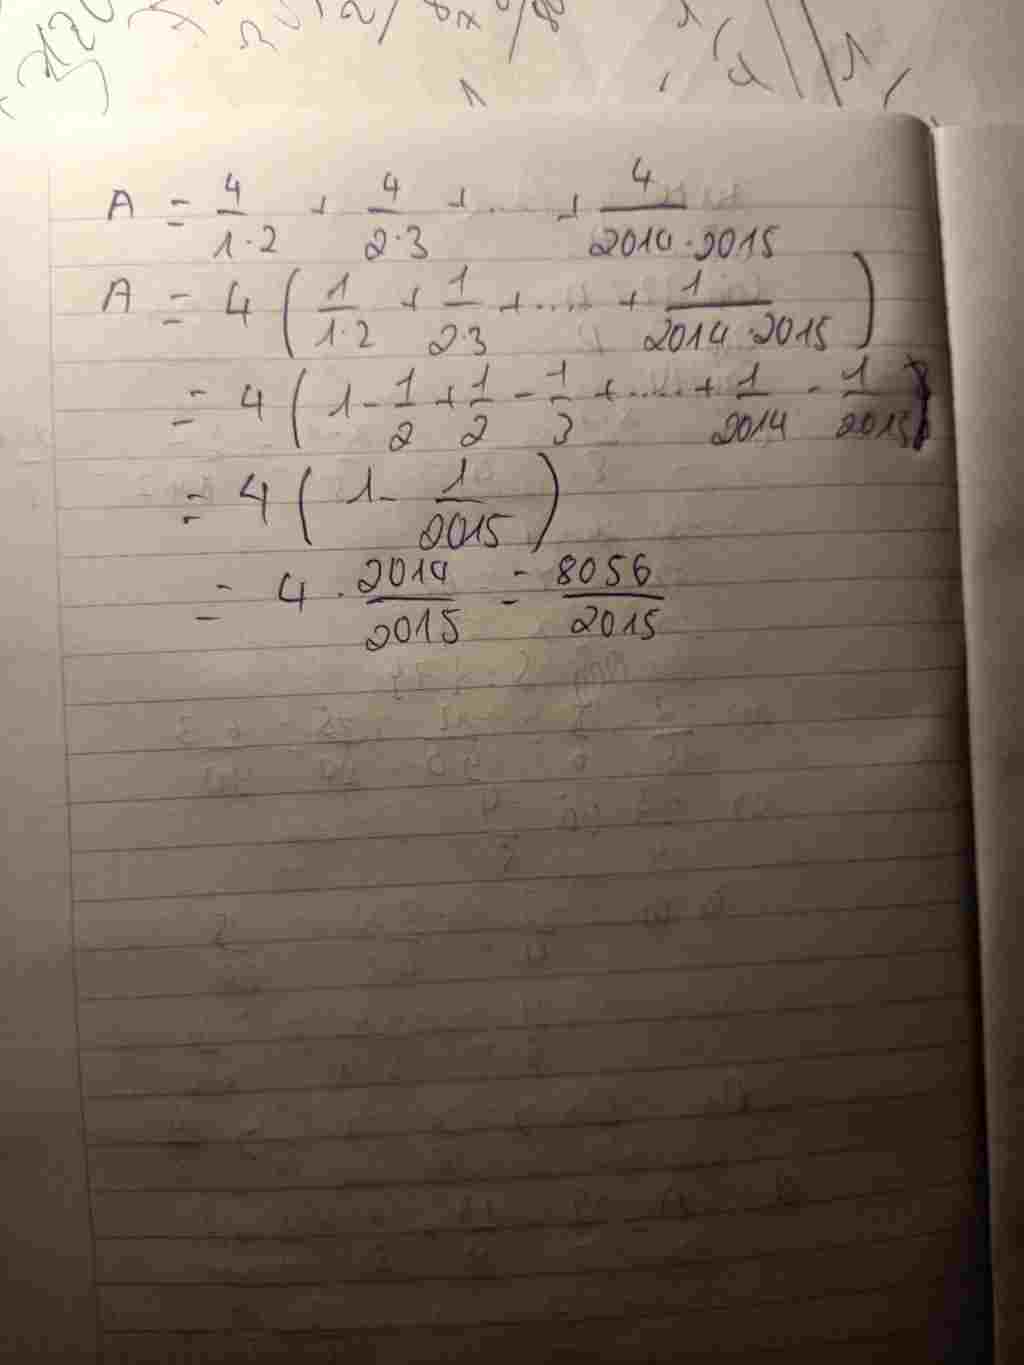 A = 4/(1·2) + 4/(2·3) + ... + 4/(2014·2015)
A = 4 ( 1/(1·2) + 1/(2·3) + .... + 1/(2014·2015) )
= 4 ( 1 - 1/2 + 1/2 - 1/3 + ..... + 1/2014 - 1/2015 )
= 4 ( 1 - 1/2015 )
= 4 · 2014/2015 = 8056/2015